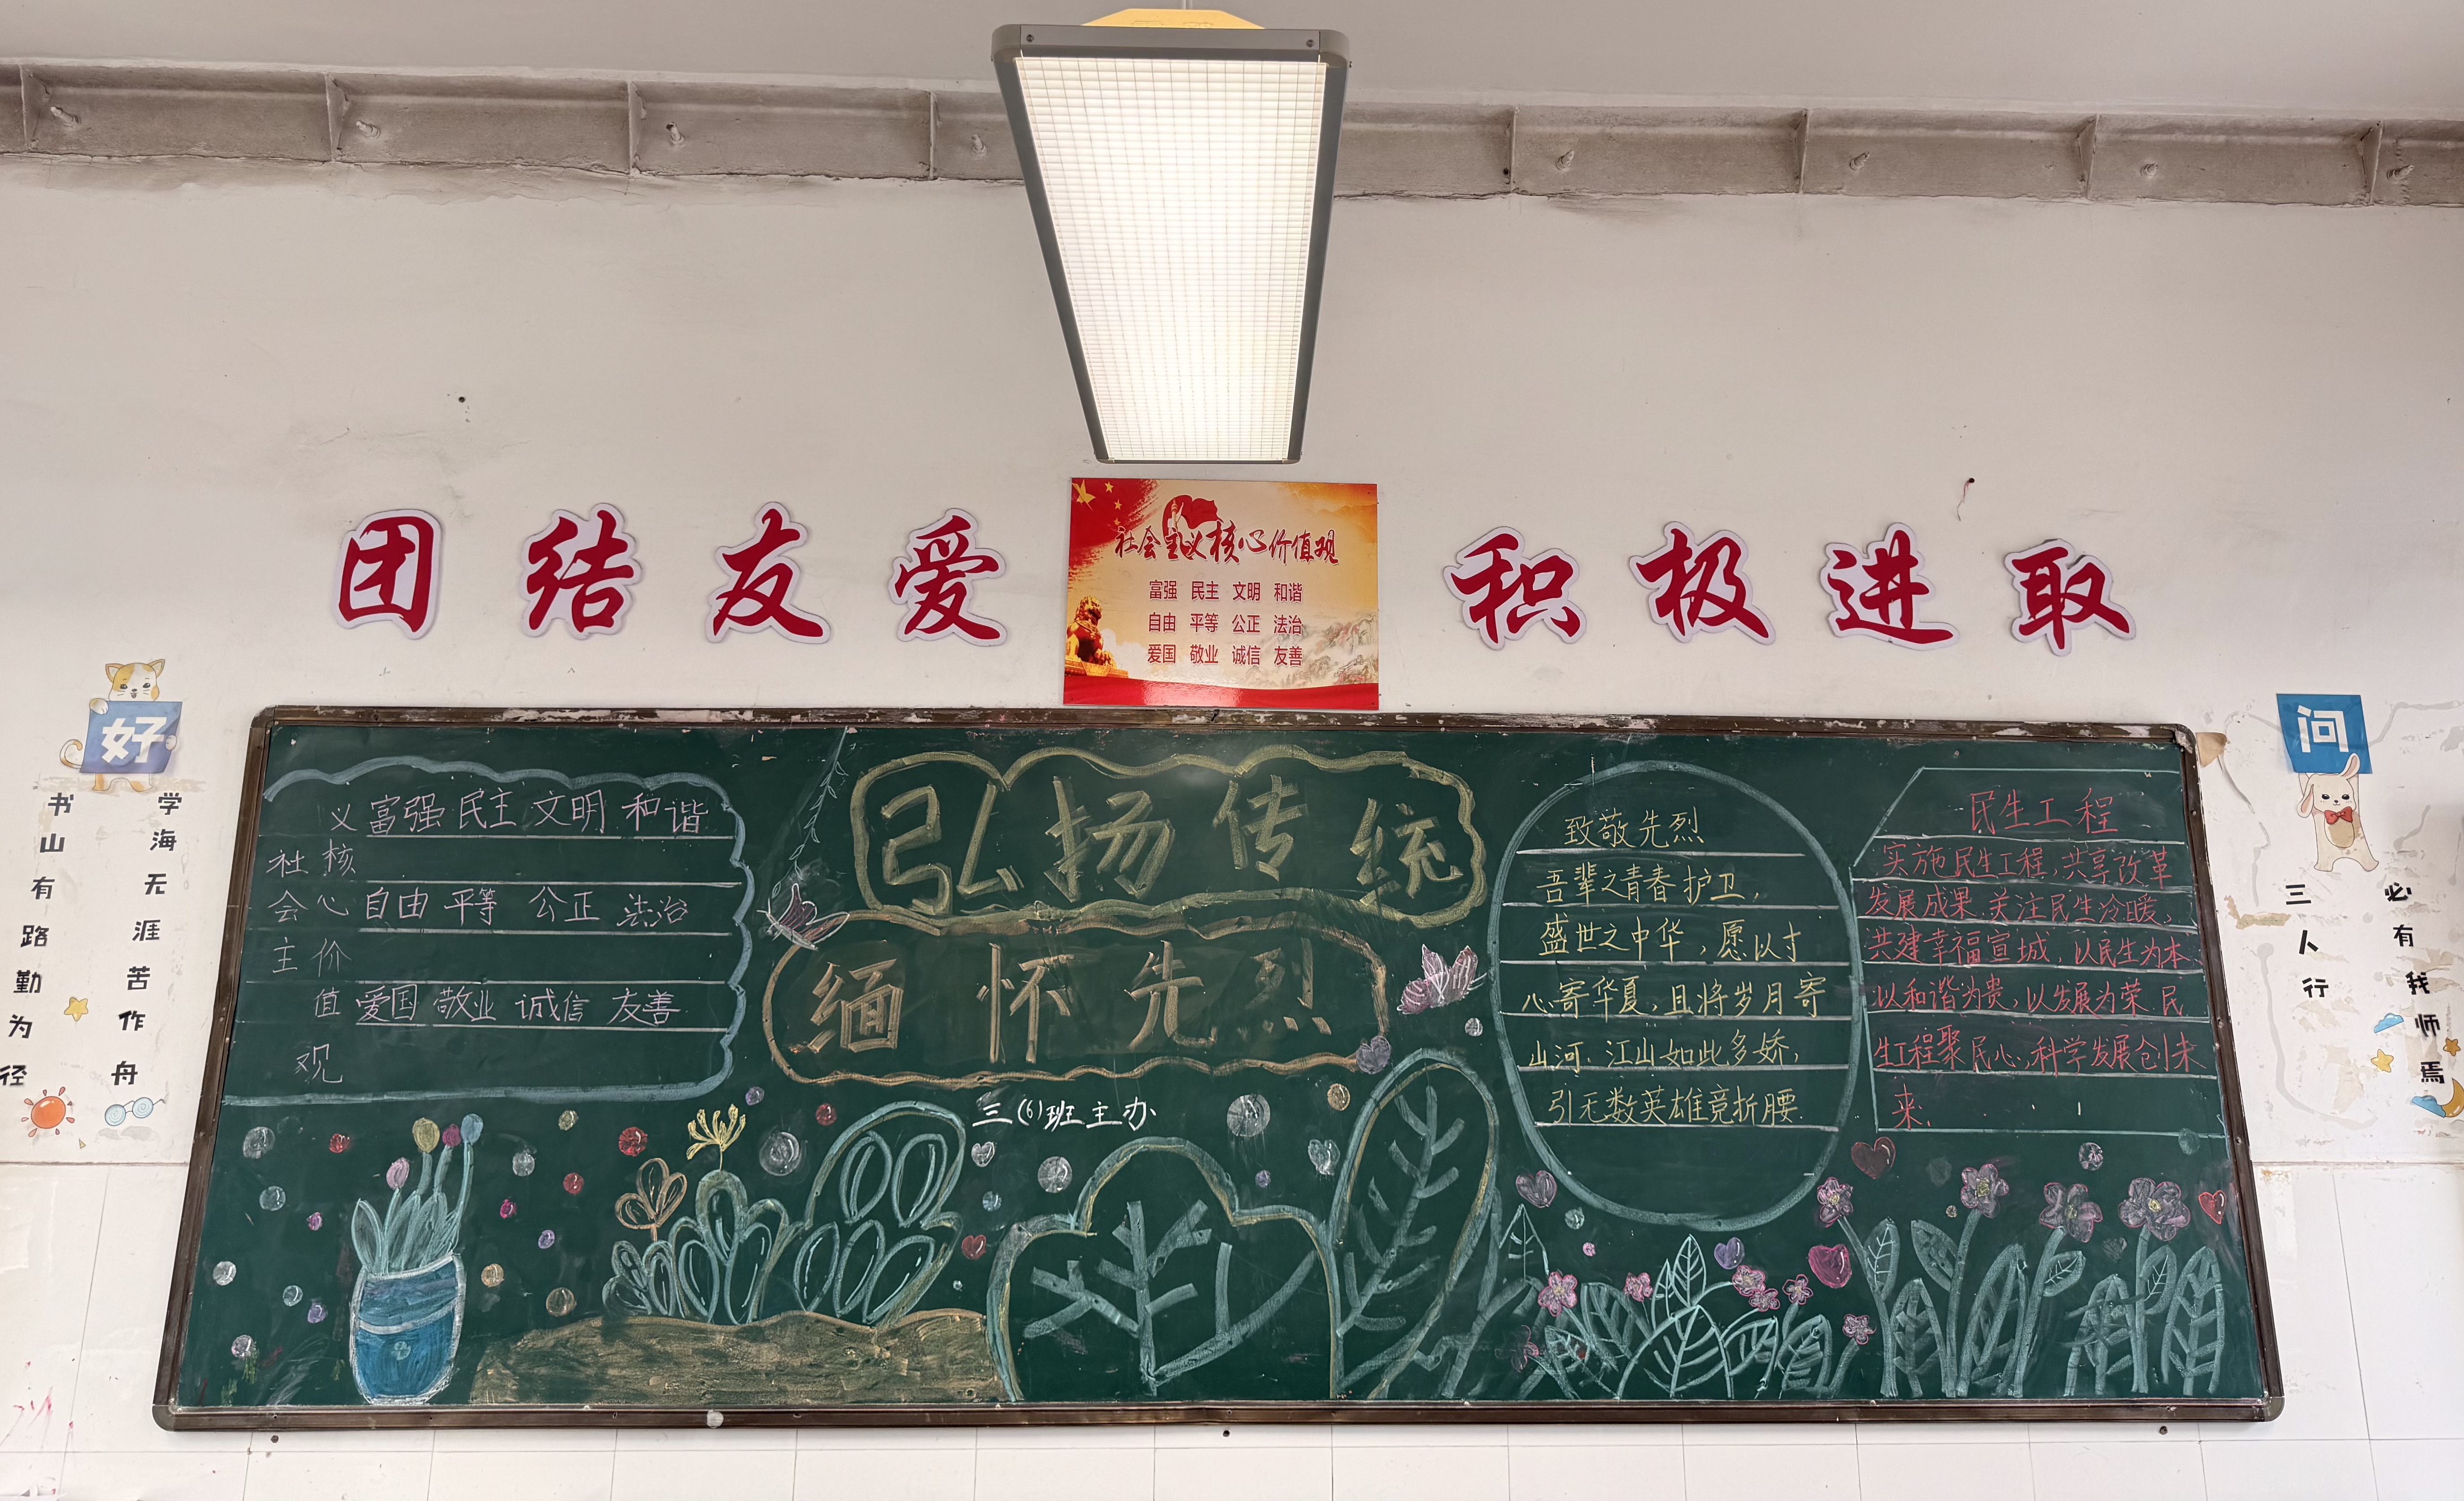 团结友爱
社会主义核心价值观
富强 民主 文明 和谐
自由 平等 公正 法治
爱国 敬业 诚信 友善
积极进取
好
学海无涯苦作舟
书山有路勤为径
社会主
义核心价值观
富强 民主 文明 和谐
自由 平等 公正 法治
爱国 敬业 诚信 友善
弘扬传统
缅怀先烈
三(6)班主办
致敬先烈
吾辈之青春护卫,
盛世之中华,愿以寸
心寄华夏,且将岁月寄
山河.江山如此多娇,
引无数英雄竞折腰.
民生工程
实施民生工程,共享改革
发展成果.关注民生冷暖,
共建幸福宣城,以民生为本
以和谐为贵,以发展为荣.民
生工程聚民心,科学发展创未
来.
问
三人行
必有我师焉